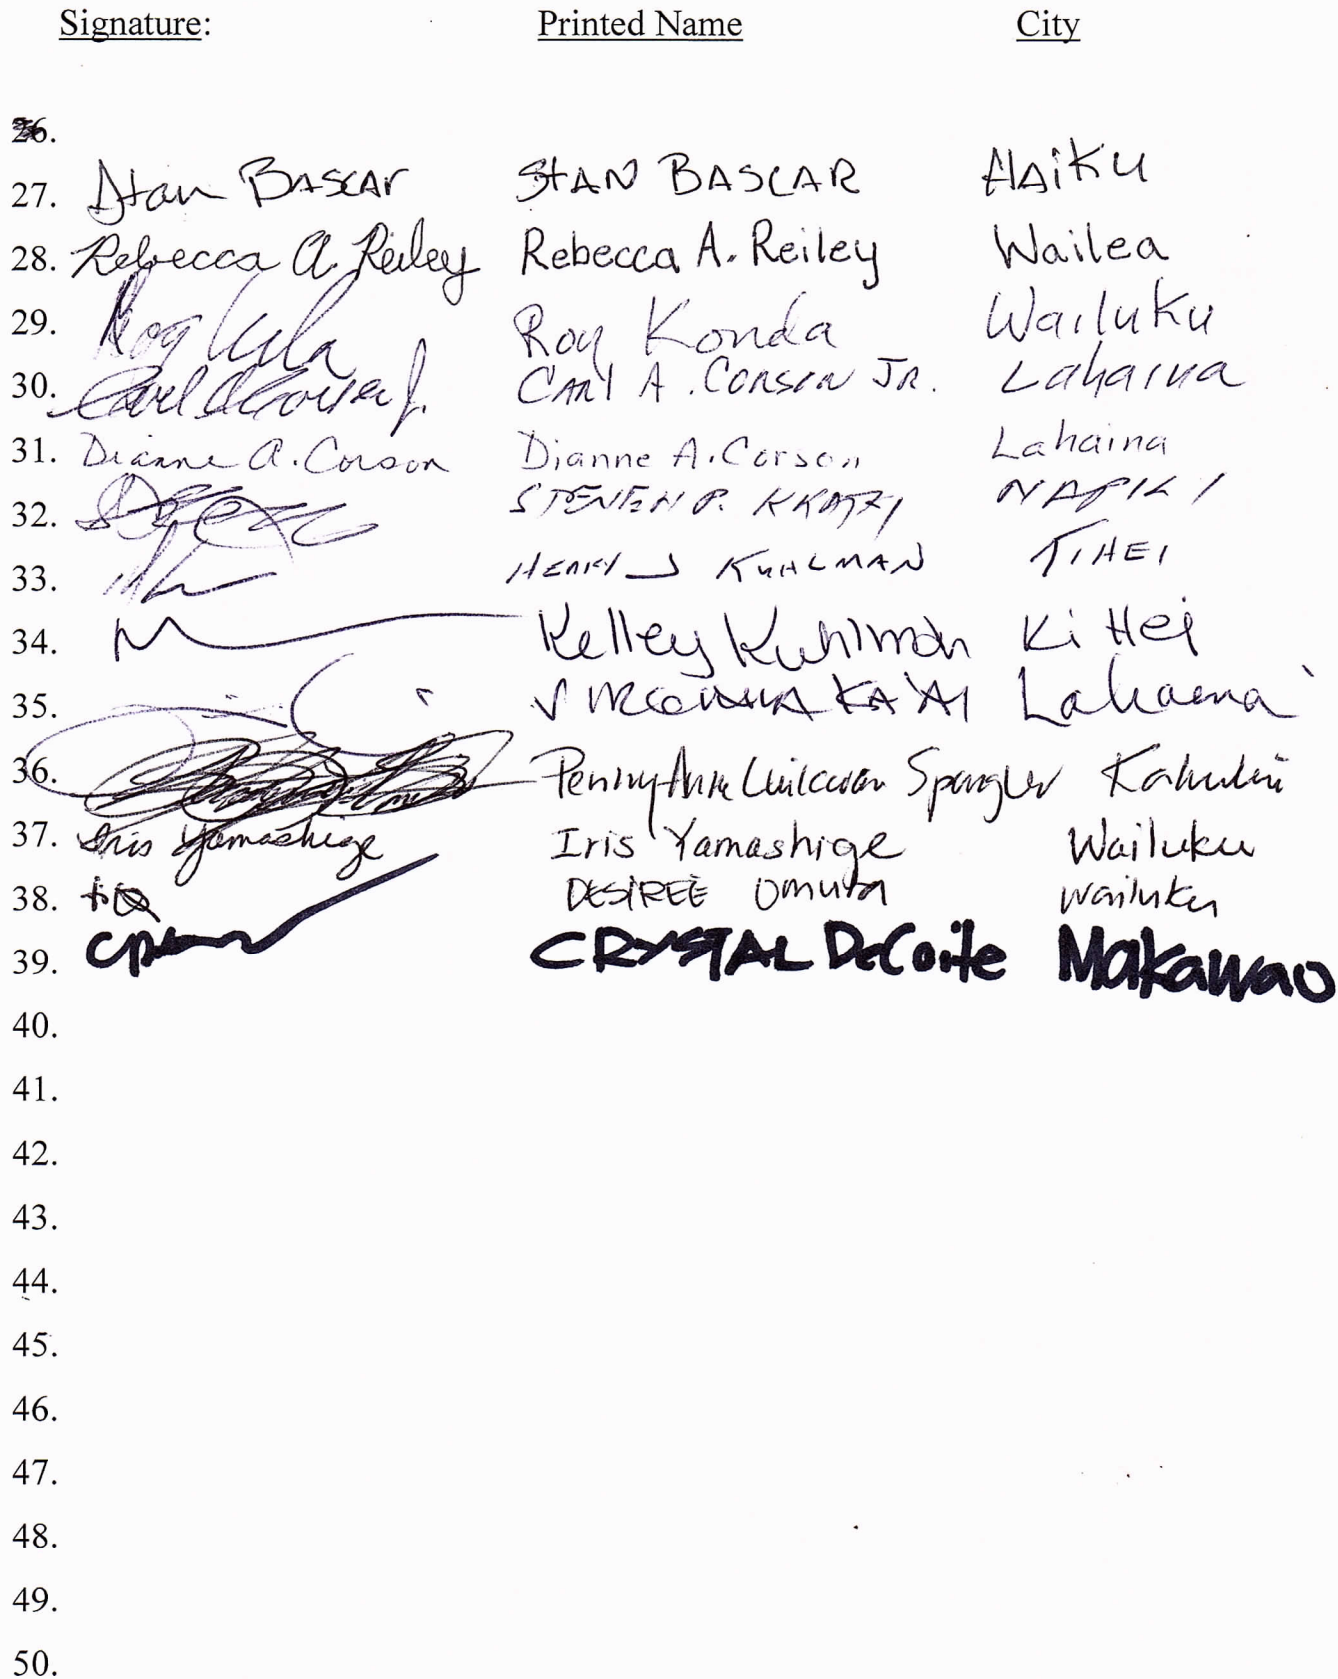 Signature: Printed Name City
26.
27. Stan BASCAR STAN BASCAR HAiKu
28. Rebecca A. Reiley Rebecca A. Reiley Wailea
29. Roy Konda Wailuku
30. CARl A. CORSON JR. Lahaina
31. Dianne A. Corson Dianne A. Corson Lahaina
32. STEVEN P. NAPILI
33. HENRY J KUHLMAN KIHEI
34. Kelley Kuhlman KiHei
35. VIRGINIA KA'AI Lahaina
36. PennyAnn Spangler Kahului
37. Iris Yamashige Iris Yamashige Wailuku
38. DESIREE Omura wailuku
39. CRYSTAL DeCoite Makawao
40.
41.
42.
43.
44.
45.
46.
47.
48.
49.
50.